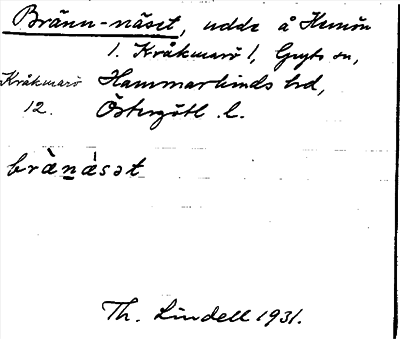 Bränn-näset, udde å Hemön
1. Kråkmarö 1, Gryts sn,
Kråkmarö Hammarkinds hd,
12. Östergötl. l.
brànásət
Th. Lindell 1931.